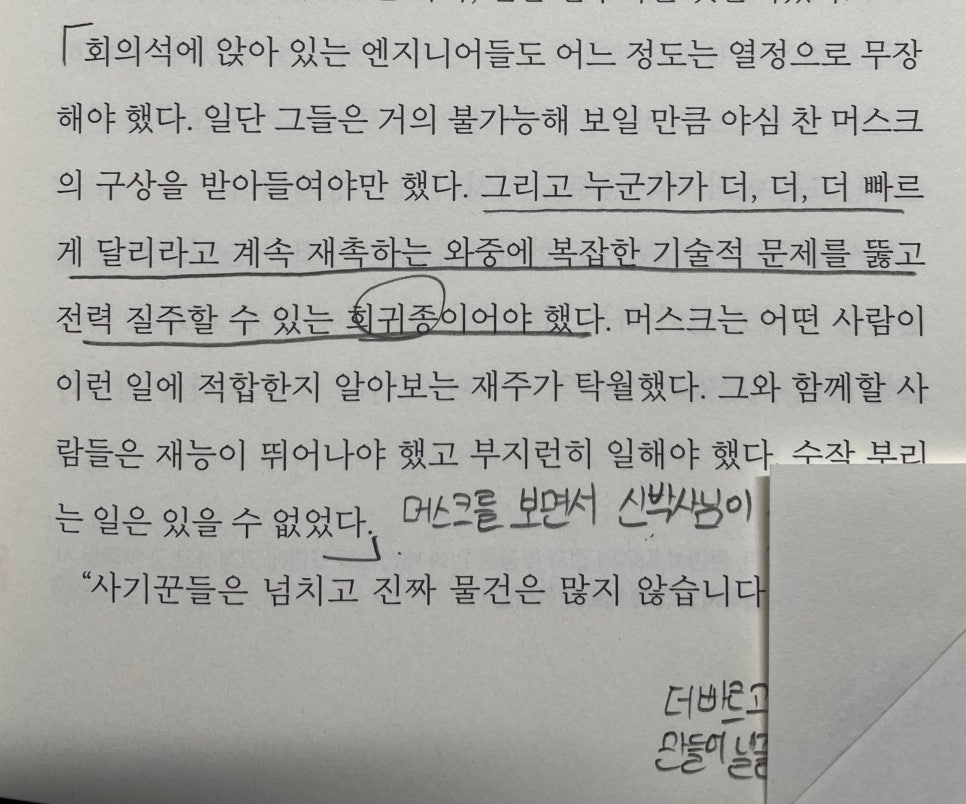 회의석에 앉아 있는 엔지니어들도 어느 정도는 열정으로 무장
해야 했다. 일단 그들은 거의 불가능해 보일 만큼 야심 찬 머스크
의 구상을 받아들여야만 했다. 그리고 누군가가 더, 더, 더 빠르
게 달리라고 계속 재촉하는 와중에 복잡한 기술적 문제를 뚫고
전력 질주할 수 있는 희귀종이어야 했다. 머스크는 어떤 사람이
이런 일에 적합한지 알아보는 재주가 탁월했다. 그와 함께할 사
람들은 재능이 뛰어나야 했고 부지런히 일해야 했다. 수작 부리
는 일은 있을 수 없었다.
머스크를 보면서 신박사님이
“사기꾼들은 넘치고 진짜 물건은 많지 않습니다
더빠르고
만들어